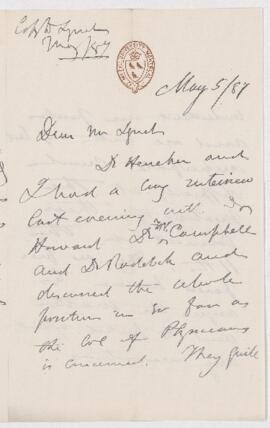 May/87
May 5/87
Dear Mr Lynch
Dr and
I had a long interview
last evening with Dr
Howard Dr Campbell
and Dr Roddick and
discussed the whole
position in so far as
the Col of Physicians
is concerned. They quite